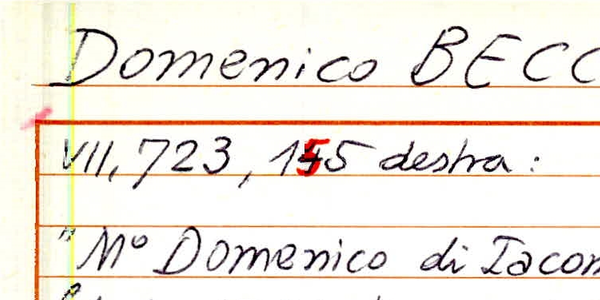 Domenico BECC
VII, 723, 155 destra:
"Mº Domenico di Iacom